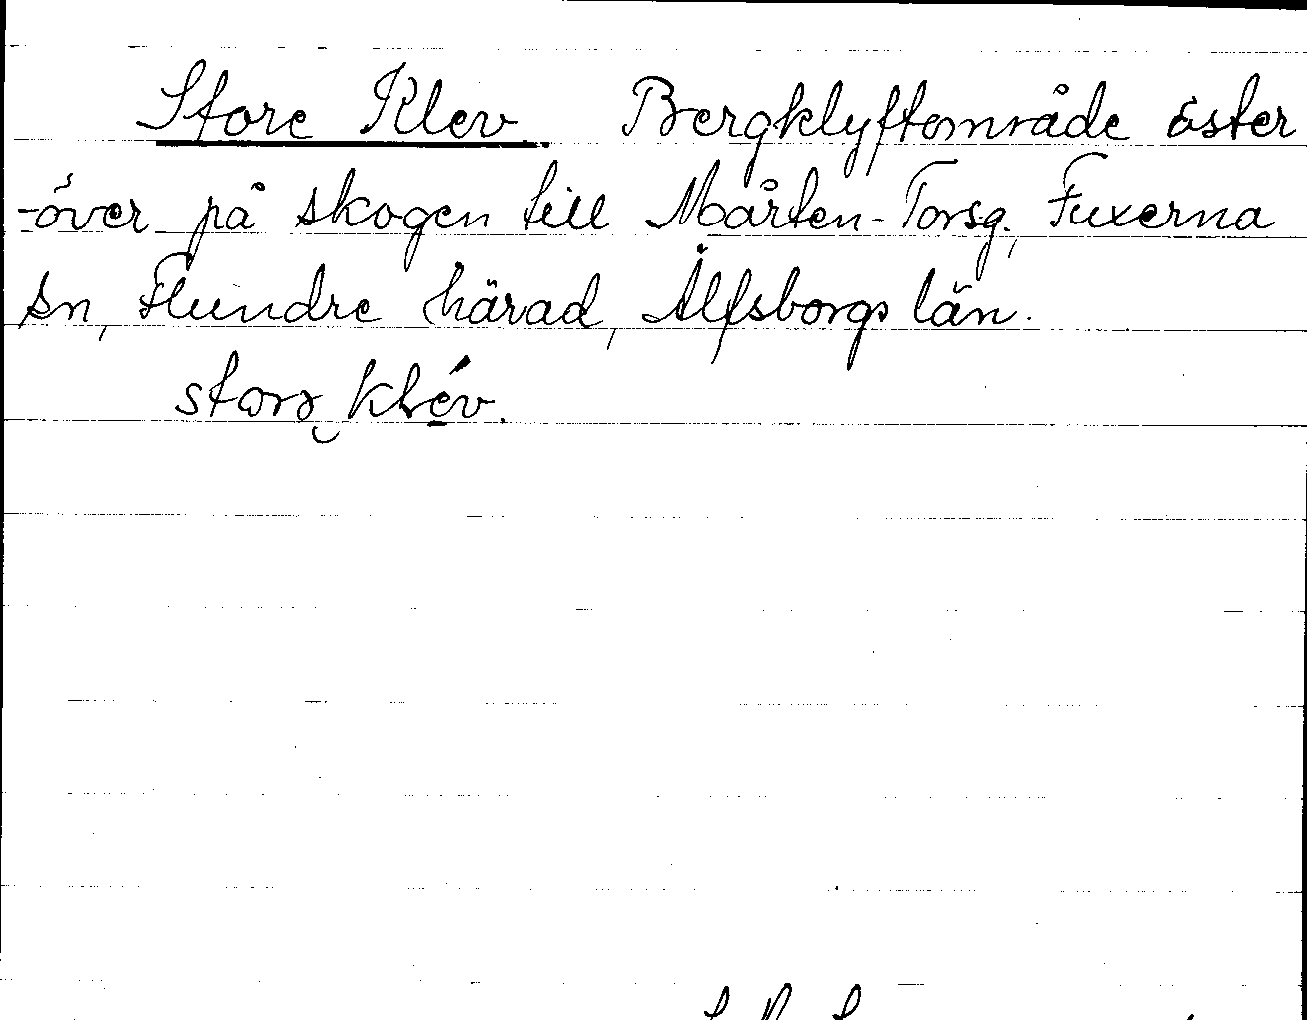 Store Klev Bergklyftområde öster
-över på skogen till Mårten-Torsg., Fuxerna
sn, Flundre härad, Älfsborgs län.